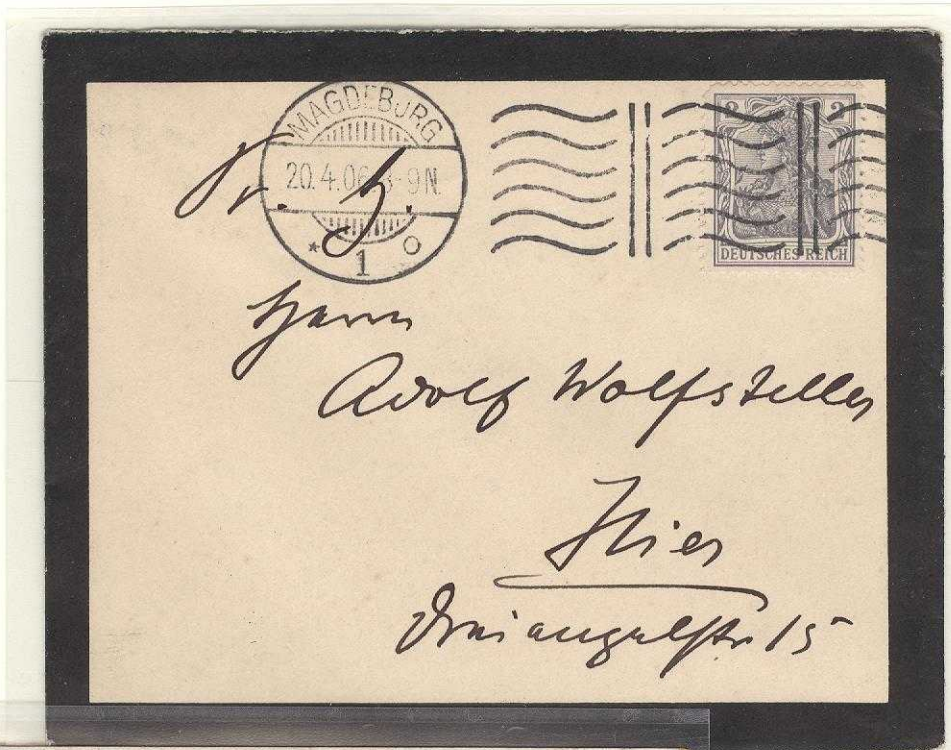 MAGDEBURG
20.4.06 8-9N.
* 1 o
2 2
DEUTSCHES REICH
Herrn
Adolf Wolfsteller
Hier
Dreiangelstr 15